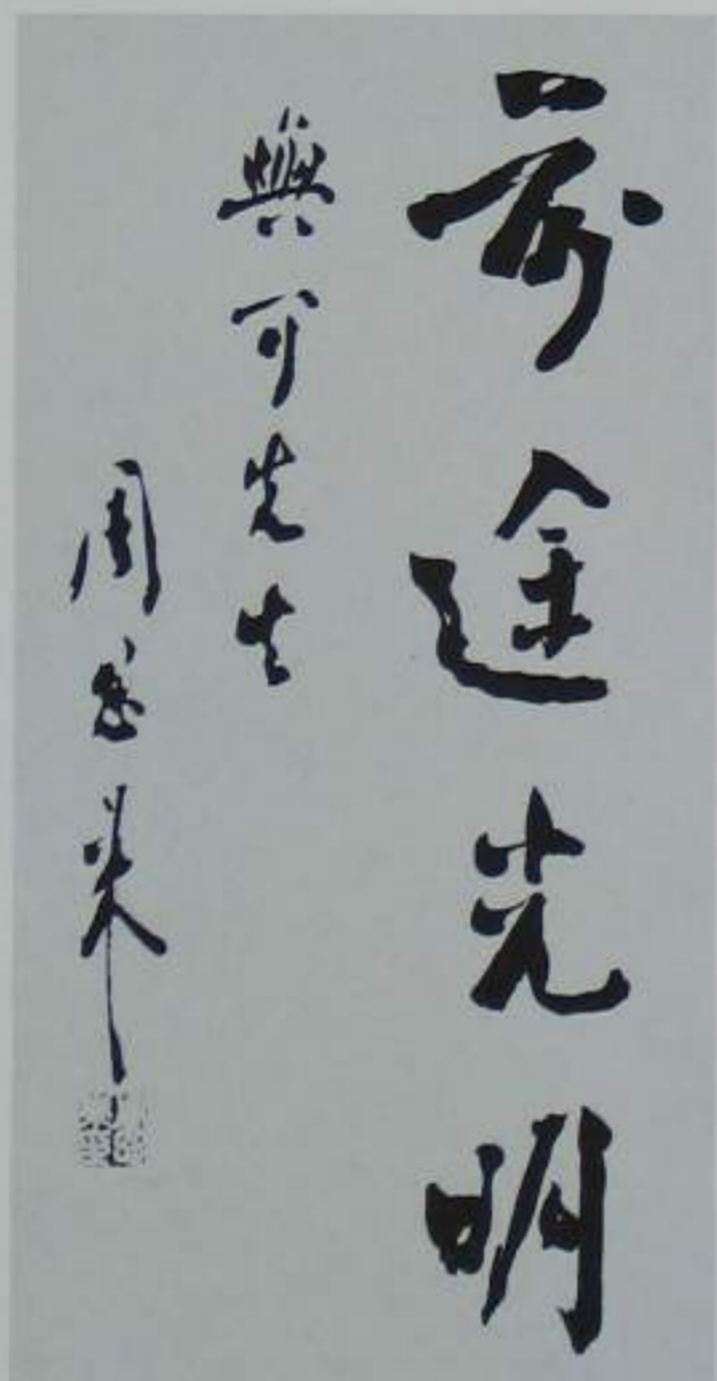 前途光明
興可先生
周恩来